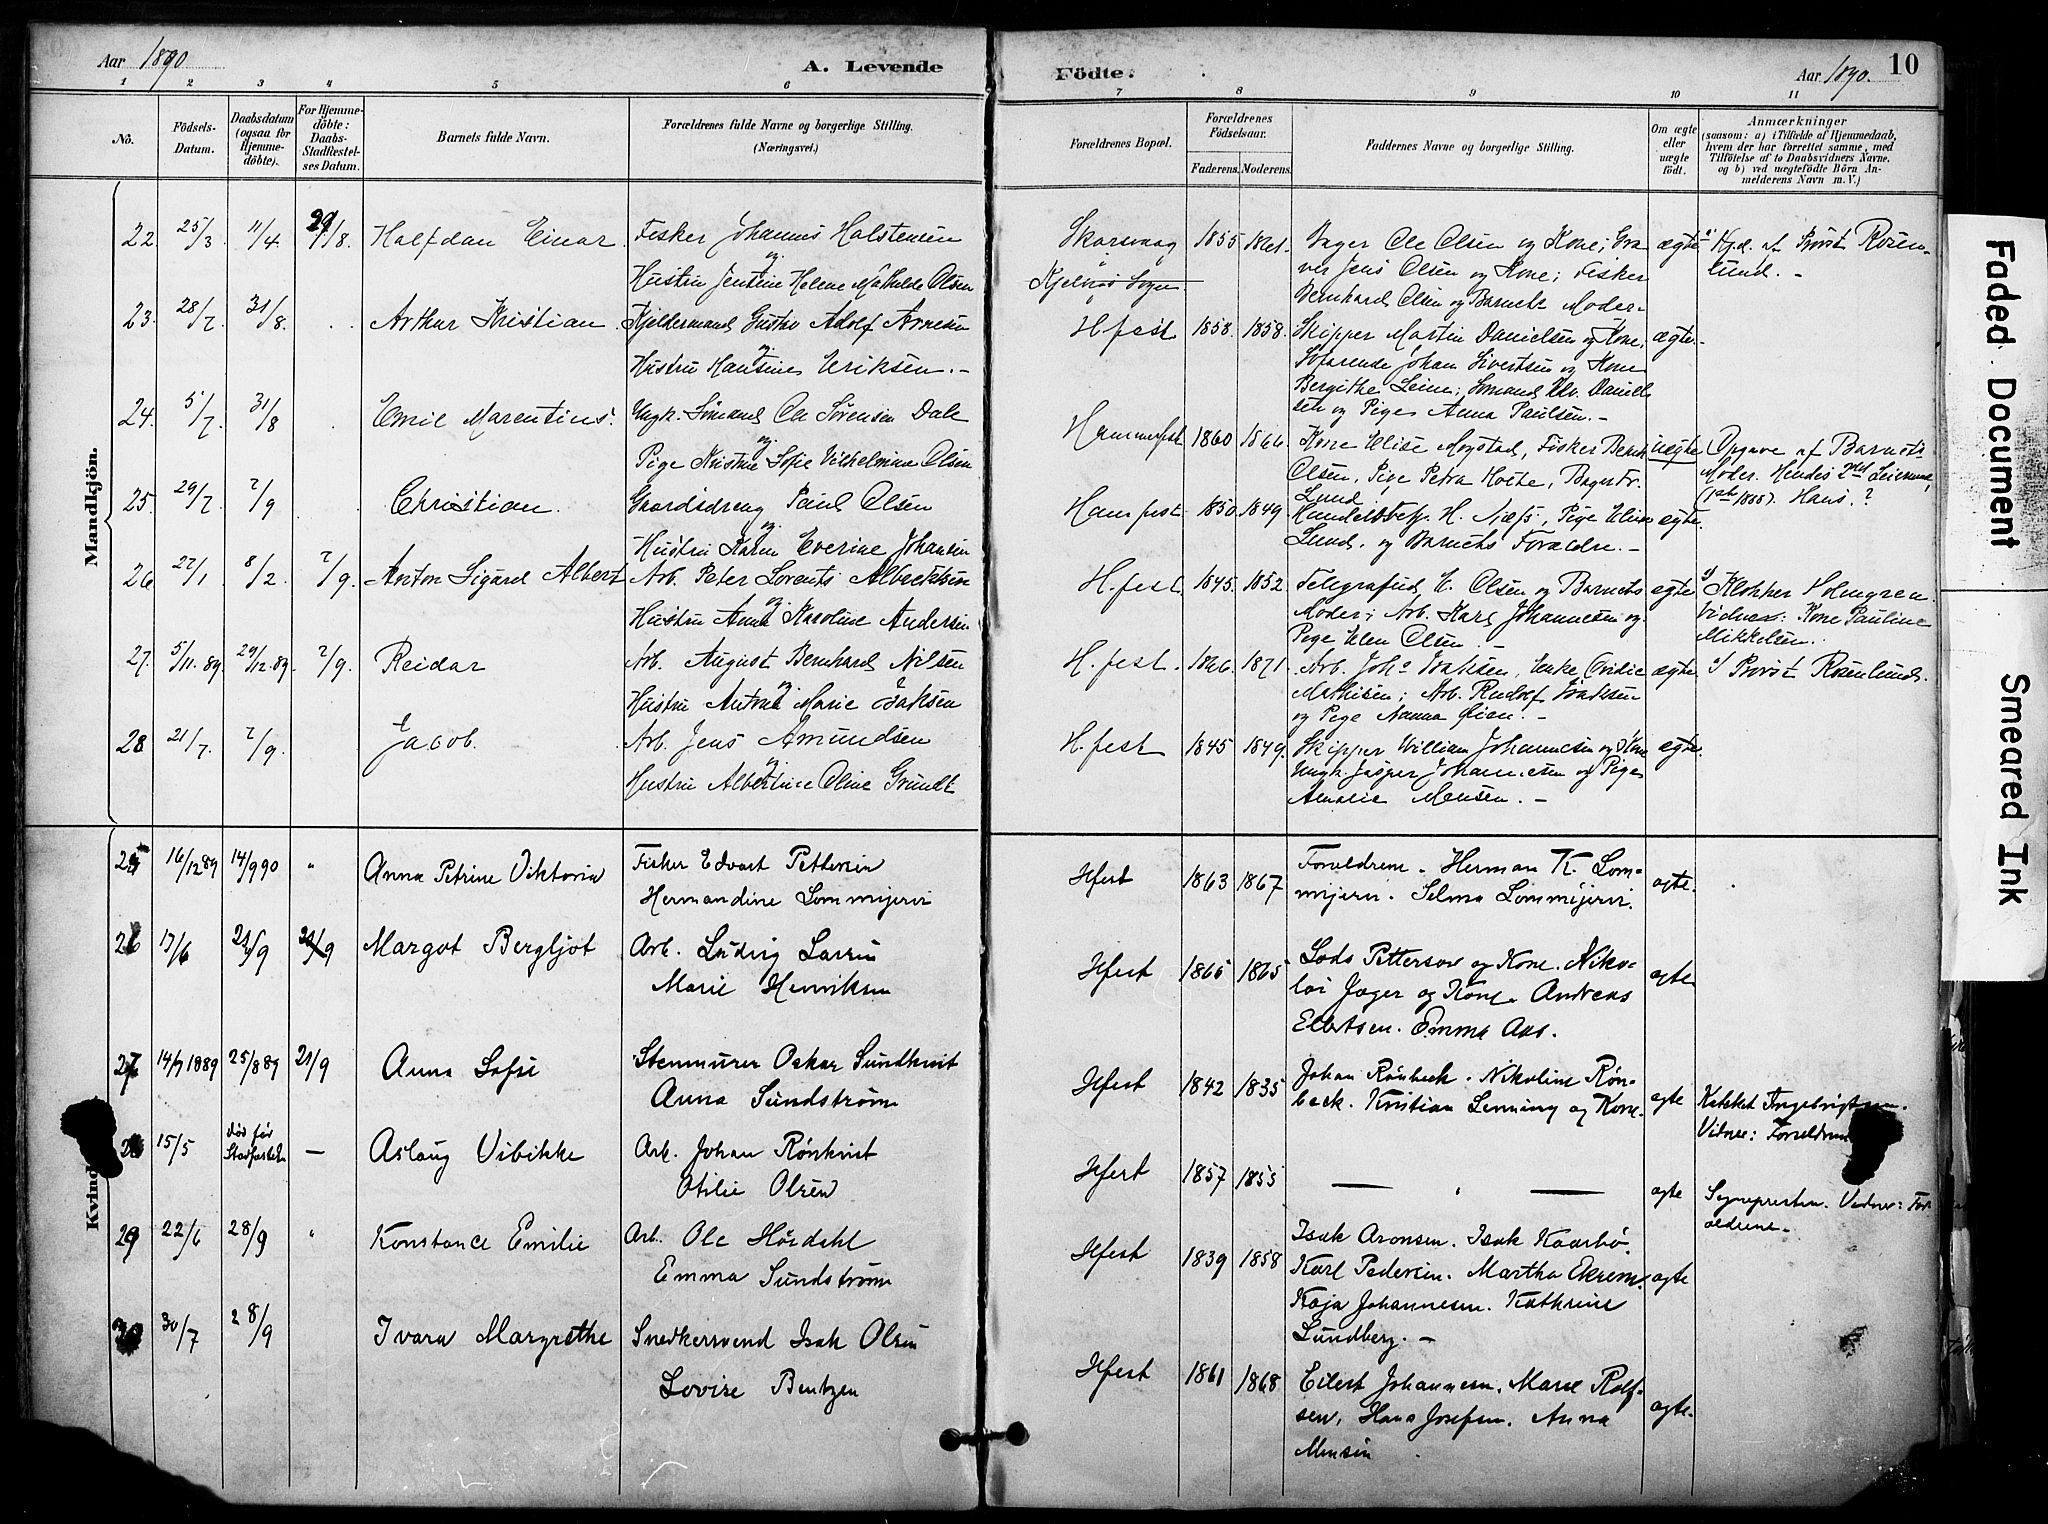 Aar 1890
A. Levende
Födte:
Aar 1890.
10
1 2 3 4 5 6 7 8 9 10 11
No.
Födsels-
Datum.
Daabsdatum
(ogsaa for
Hjemme-
döbte).
For Hjemme-
döbte:
Daabs-
Stadfæstel-
ses Datum.
Barnets fulde Navn.
Forældrenes fulde Navne og borgerlige Stilling.
(Næringsvei.)
Forældrenes Bopæl.
Forældrenes
Födselsaar.
Faderens. Moderens.
Faddernes Navne og borgerlige Stilling.
Om ægte
eller
uægte
födt.
Anmærkninger
(saasom: a) i Tilfelde af Hjemmedaab,
hvem der har forrettet samme, med
Tilföielse af to Daabsvidners Navne.
og b) ved uægtefödte Börn An-
melderens Navn m. V.)
Mandkjön.
22. 25/3 11/4. 29/8. Halfdan Einar. Fisker Johannes Halstensen
og
Hustru Jentine Helene Mathilde Olsen
Skarsvaag 1855
Kjelvig Sogn
Bager Ole Olsen og Kone; Gra-
ver Jens Olsen og Kone; Fisker
Bernhard Olsen og Barnets Moder-
ægte Hjd. af Provst Rosen-
lund. -
23. 28/7 31/8. Arthur Kristian. Gustav Adolf Arnesen
og
Hustru Hansine Eriksen. -
H.fest 1858. 1858. Skipper Martin Danielsen og Kone;
Søfarende Johan Sivertsen og Kone
Bergithe Leine; Sømand Daniel-
sen og Pige Anna Paulsen. -
ægte.
24. 5/7 31/8 Emil Marentius. Ungk. Sømand Ole Sørensen Dale
og
Pige Kristine Sofie Vilhelmine Olsen
Hammerfest 1860 1866. Kone Elise Mogstad, Fisker
Olsen, Pige Petra Holte, Bager Fr.
Lund
uægte Opgave af Barnets
Moder. Hendes 2det Leiermaal,
(1ste 1888). Hans?
25. 29/7 7/9 Christian. Gaardsdreng Paul Olsen
og
Hustru Karen Everine Johansen
Hamfest 1850 1849 Handelsbetj. H. Næss, Pige Elise
Lund. og Barnets Forældre. -
ægte.
26 22/1 8/2. 7/9. Anton Sigurd Albert Arb. Peter Lorents Albrektsen
og
Hustru Anna Karoline Andersen
H.fest. 1845. 1852. Telegrafbud E. Olsen og Barnets
Moder; Arb. Karl Johannesen og
Pige Elen Olsen. -
ægte Klokker Holmgren.
Vidner: Kone Pauline
Mikkelsen.
27. 5/11.89 29/12.89. 7/9. Reidar Arb. August Bernhard Nilsen
og
Hustru Antona Marie Isaksen
H.fest. 1866. 1871. Arb. Johs Isaksen, Enke Ovidie
Mathisen; Arb. Rudolf Isaksen
og Pige Nanna Øien. -
ægte. Provst Rosenlund.
28 21/7. 7/9. Jacob. Arb. Jens Amundsen
og
Hustru Albertine Oline Grundt
H.fest 1845 1849. Skipper William Johannesen og Kone
Ungk. Jasper Johannesen og Pige
Amalie Monsen. -
ægte.
Kvind
25 16/12 89 14/9 90 " Anna Petrine Viktoria Fisker Edvart Pettersen
Hermandine Lommijervi
Hfest 1863 1867 Forældrene. Herman K. Lom-
mijervi. Selma Lommijervi.
ægte.
26 17/6 21/9 21/9 Margot Bergljot Arb. Ludvig Larsen
Marie Henriksen
Hfest 1865 1865 Lods Pettersen og Kone. Niko-
lai Jager og Kone. Andreas
Ellertsen. Emma Aas.
ægte
27 14/7 1889 25/8 89 21/9 Anna Sofie Stenmurer Oskar Sundkvist
Anna Sundstrøm
Hfest 1842 1835 Johan Rønbeck. Nikoline Røn-
beck. Kristian Lenning og Kone.
ægte Kateket Ingebrigtsen.
Vidner: Forældrene
28 15/5 død før
Stadfæstelse
— Aslaug Vibikke Arb. Johan Rønkvist
Otilie Olsen
Hfest 1857 1855 — " —
ægte Sognepresten. Vidner: For-
ældrene.
29 22/6 28/9 " Konstance Emilie Arb. Ole Hørdahl
Emma Sundstrøm
Hfest 1839 1858 Isak Aronsen. Isak Kaarbø.
Karl Pedersen. Martha Ekrem.
Kaja Johannesen. Kathrine
Lundberg. -
ægte
30 30/7 28/9 Ivara Margrethe Snedkersvend Isak Olsen
Lovise Bentzen
Hfest 1861 1868 Eilert Johannesen. Marie Rolf-
sen. Hans Josefsen. Anna
Monsen
ægte.
Faded Document
Smeared Ink